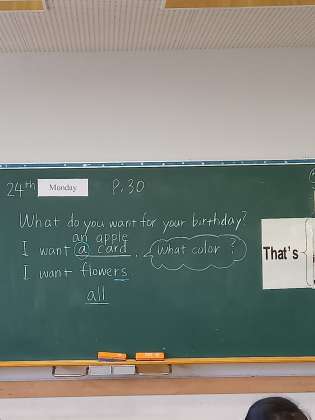 24th Monday P.30
What do you want for your birthday?
an apple
I want a card. What color?
I want flowers.
all
That's